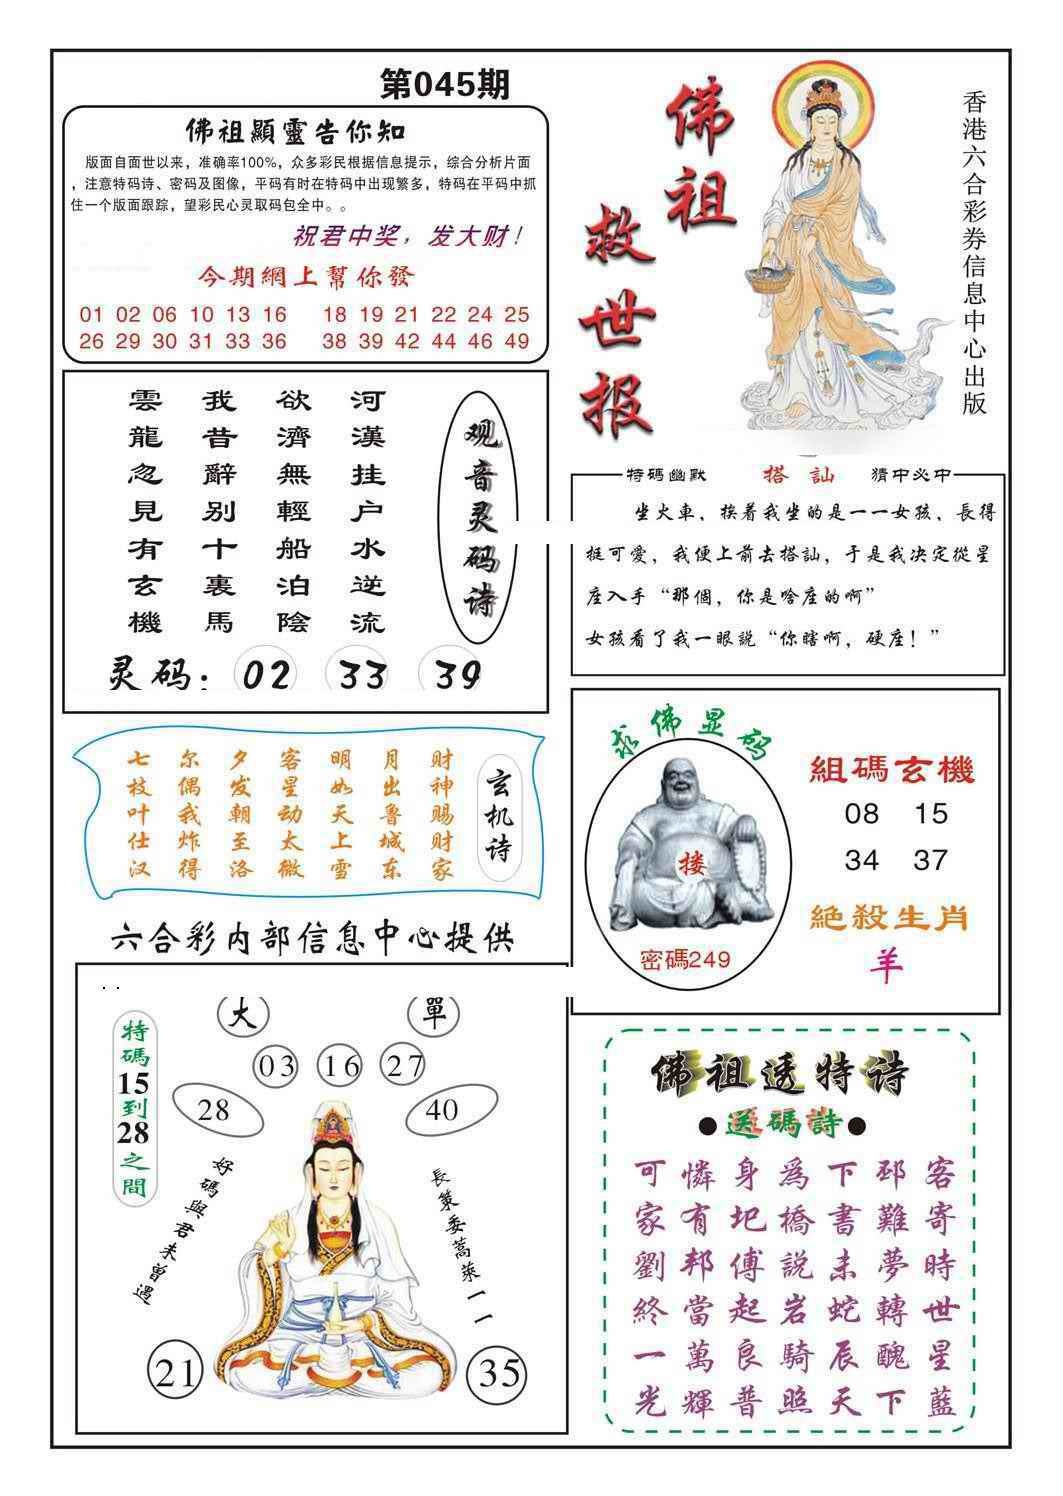 第045期
佛祖顯靈告你知
版面自面世以来，准确率100%，众多彩民根据信息提示，综合分析片面
，注意特码诗、密码及图像，平码有时在特码中出现繁多，特码在平码中抓
住一个版面跟踪，望彩民心灵取码包全中。。
祝君中奖，发大财！
今期網上幫你發
01 02 06 10 13 16 18 19 21 22 24 25
26 29 30 31 33 36 38 39 42 44 46 49
佛祖
救世报
香港六合彩券信息中心出版
观音灵码诗
河漢挂户水逆流
欲濟無輕船泊陰
我昔辭别十裏馬
雲龍忽見有玄機
灵码：02 33 39
特码幽默 搭訕 猜中必中
坐火車，挨着我坐的是一一女孩，長得
挺可愛，我便上前去搭訕，于是我决定從星
座入手“那個，你是啥座的啊”
女孩看了我一眼説“你瞎啊，硬座！”
玄机诗
财神赐财家
月出鲁城东
明如天上雪
客星动太微
夕发朝至洛
尔偶我炸得
七枝叶仕汉
求佛显码
搂
密碼249
組碼玄機
08 15
34 37
絶殺生肖
羊
六合彩内部信息中心提供
大 單
03 16 27
28 40
特碼15到28之間
好碼與君未曾遇
長策委蒿萊一一
21 35
佛祖透特诗
●送碼詩●
客寄時世星藍
邳難夢轉醜下
下書未蛇辰天
爲橋説岩騎照
身圯傅起良普
憐有邦當萬輝
可家劉終一光